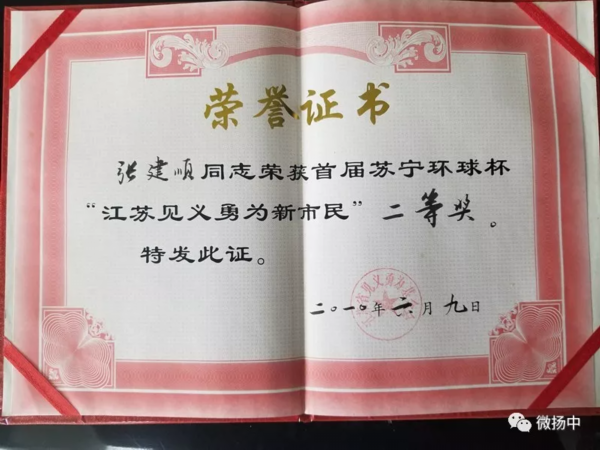 荣誉证书
张建顺同志荣获首届苏宁环球杯
“江苏见义勇为新市民”二等奖。
特发此证。
二〇一〇年六月九日
微扬中